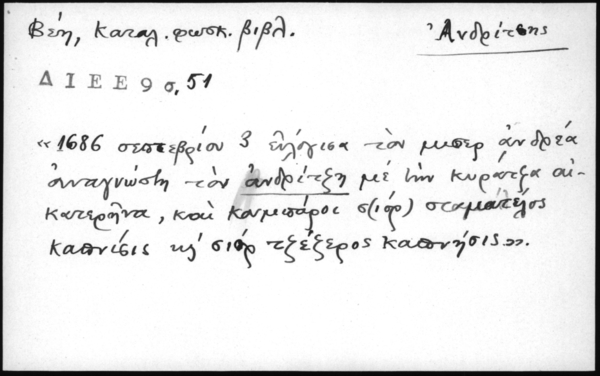 Βέη, Καταλ. φωσκ. βιβλ.
Ἀνδρίτσης
ΔΙΕΕ 9 σ. 51
«1686 σεπτεβρίου 3 εὐλόγισα τὸν μισερ ἀνδρέα
ἀναγνώστη τὸν ἀνδρίτζη μὲ τὴν κυράτζα αἰ-
κατερῆνα, καὶ κουμπάροι σ(ιὸρ) σταματέλος
καπνίσις κι' σιὸρ τζέξερος καπνήσις».